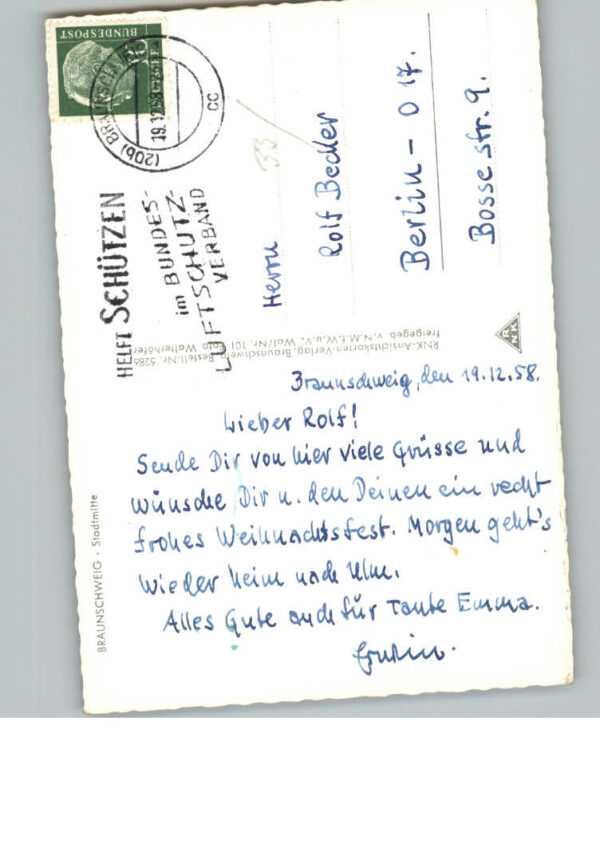 BUNDESPOST
(20b) BRAUNSCHWEIG
19.12.58
cc
HELFT SCHÜTZEN
im BUNDES-
LUFTSCHUTZ-
VERBAND
33
Herrn
Rolf Becker
Berlin - O 17.
Bosse str. 9.
RNK-Ansichtskarten-Verlag, Braunschweig Bestell-Nr. Foto Walterhöfer
freigegeb v. N.M.f.W.u.V. Wal/Nr. 101
RNK
BRAUNSCHWEIG · Stadtmitte
Braunschweig, den 19.12.58.
Lieber Rolf!
Sende Dir von hier viele Grüsse und
wünsche Dir u. den Deinen ein recht
frohes Weihnachtsfest. Morgen geht's
wieder heim nach Ulm.
Alles Gute auch für Tante Emma.
Erwin.